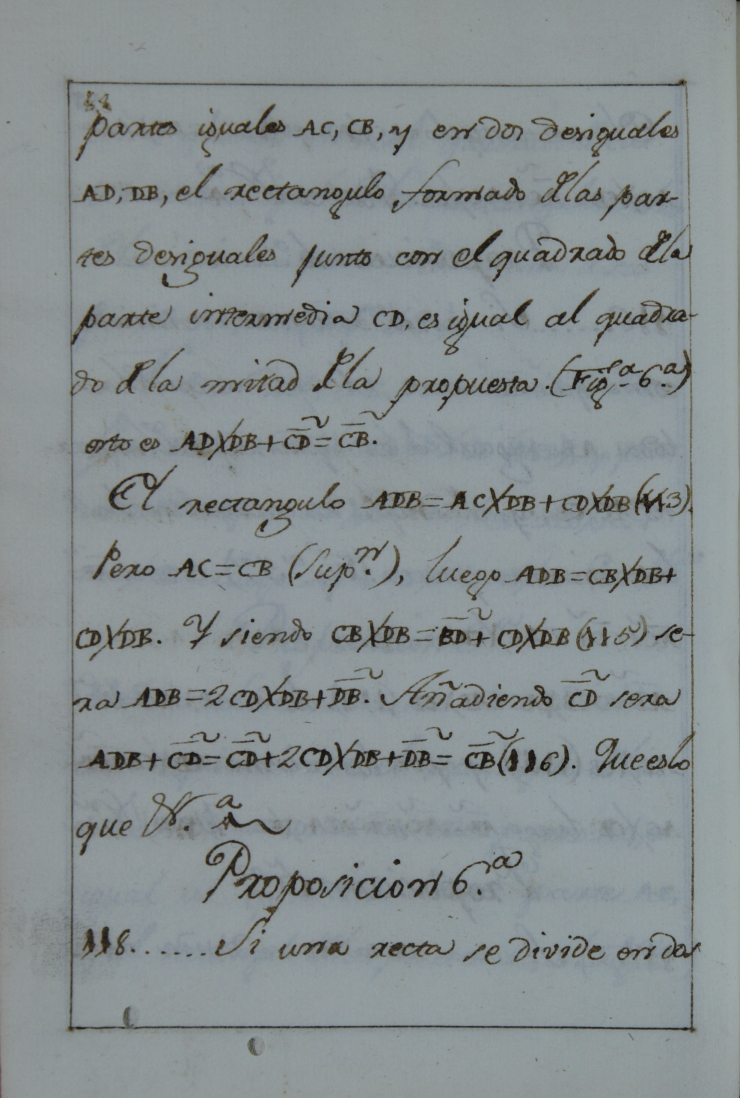 44
partes iguales AC, CB, y en dos desiguales
AD, DB, el rectangulo formado dlas par-
tes desiguales junto con el quadrado dla
parte intermedia CD, es igual al quadra-
do dla mitad dla propuesta. (Fig.ª 6.ª)
esto es AD╳DB + C̅D̅² = C̅B̅².
El rectangulo ADB = AC╳DB + CD╳DB (113).
Pero AC = CB (sup.n), luego ADB = CB╳DB +
CD╳DB. Y siendo CB╳DB = B̅D̅² + CD╳DB (115) se-
ra ADB = 2CD╳DB + D̅B̅². Añadiendo C̅D̅² sera
ADB + C̅D̅² = C̅D̅² + 2CD╳DB + D̅B̅² = C̅B̅² (116). Que es lo
que
Proposicion 6.ª
118....... Si una recta se divide en dos